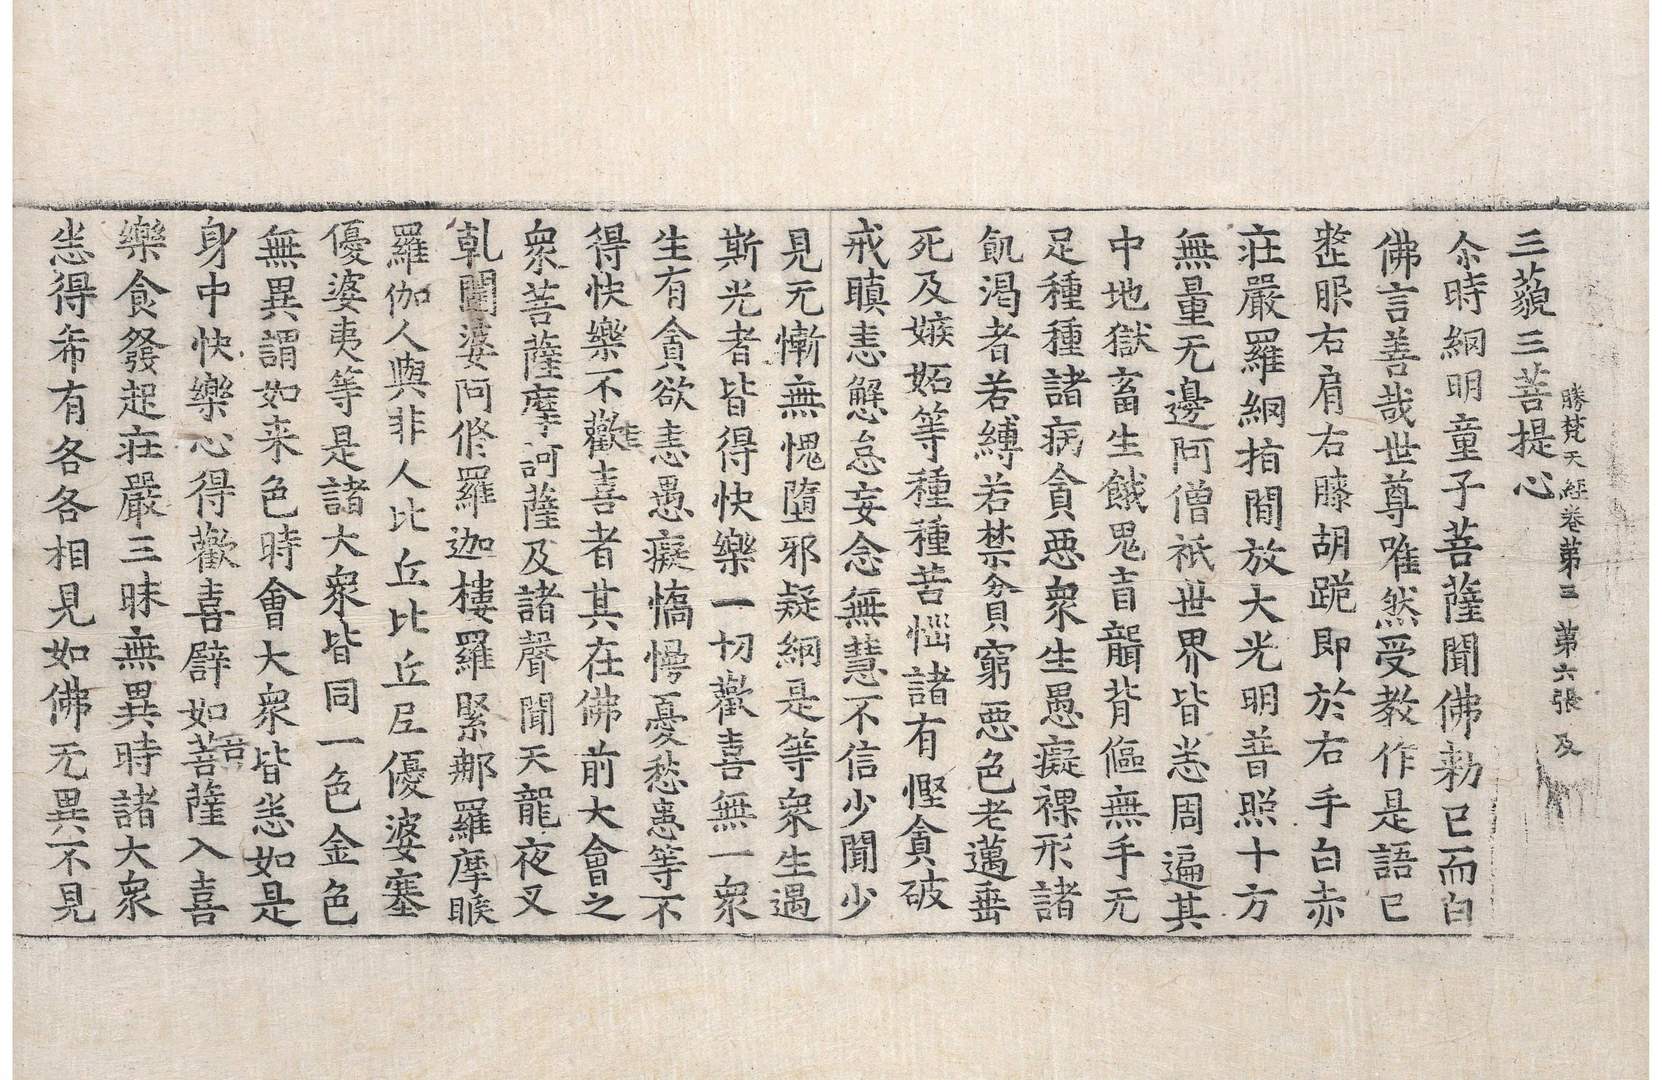 勝梵天經卷第三 第六張 及
三藐三菩提心
尒時網明童子菩薩聞佛勑已而白
佛言善哉世尊唯然受教作是語已
整服右肩右膝胡跪即於右手白赤
莊嚴羅網指間放大光明普照十方
無量无邊阿僧祇世界皆悉周遍其
中地獄畜生餓鬼盲聾背傴無手无
足種種諸病貪惡衆生愚癡裸形諸
飢渴者若縛若禁貧窮惡色老邁垂
死及嫉妬等種種苦惱諸有慳貪破
戒瞋恚懈怠妄念無慧不信少聞少
見无慚無愧墮邪疑網是等衆生遇
斯光者皆得快樂一切歡喜無一衆
生有貪欲恚愚癡憍慢憂愁恚等不
得快樂不歡喜者其在佛前大會之
衆菩薩摩訶薩及諸聲聞天龍夜叉
乹闥婆阿修羅迦樓羅緊那羅摩睺
羅伽人與非人比丘比丘尼優婆塞
優婆夷等是諸大衆皆同一色金色
無異謂如来色時會大衆皆悉如是
身中快樂心得歡喜譬如菩薩入喜
樂食發起莊嚴三昧無異時諸大衆
悉得希有各各相見如佛无異不見